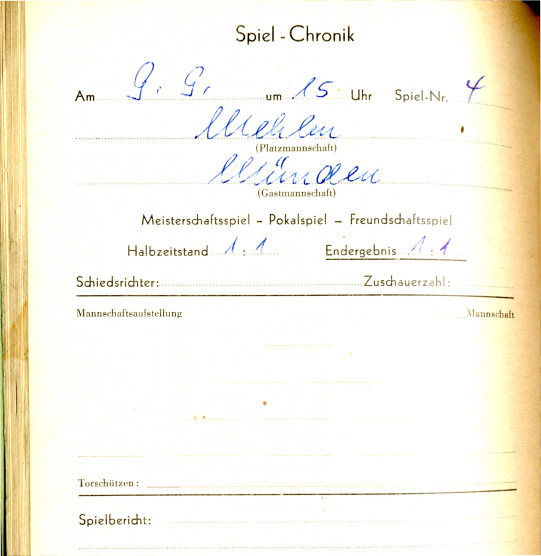 Spiel - Chronik
Am 9. 9. um 15 Uhr Spiel-Nr. 4
Mehlen
(Platzmannschaft)
Münden
(Gastmannschaft)
Meisterschaftsspiel – Pokalspiel – Freundschaftsspiel
Halbzeitstand 1 : 1 Endergebnis 1 : 1
Schiedsrichter: Zuschauerzahl:
Mannschaftsaufstellung Mannschaft
Torschützen:
Spielbericht: